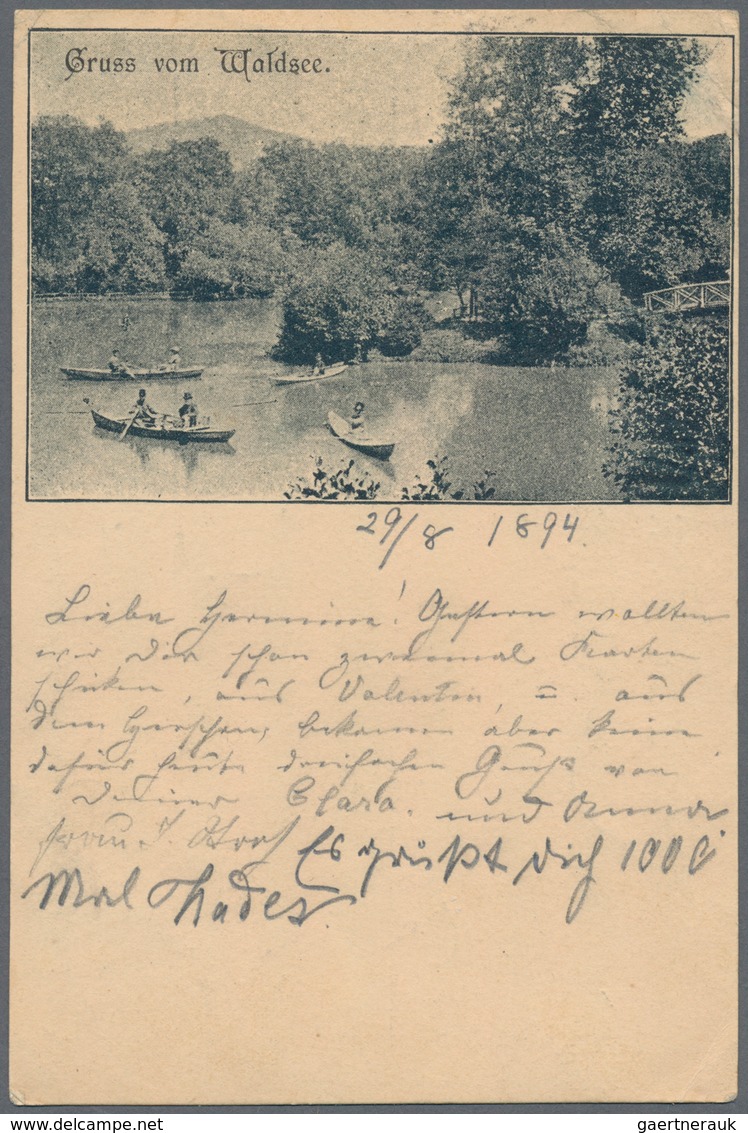 Gruss vom Waldsee.
29/8 1894.
Liebe Hermine! Gestern wollten
wir Dir schon zweimal Karten
schicken, aus Valentin, u. aus
dem Hirschen, bekamen aber keine
dafür heute dreifachen Gruß von
Deiner Clara. und Anna
Frau J.
Es grüßt dich 1000
Mal
gaertnerauk